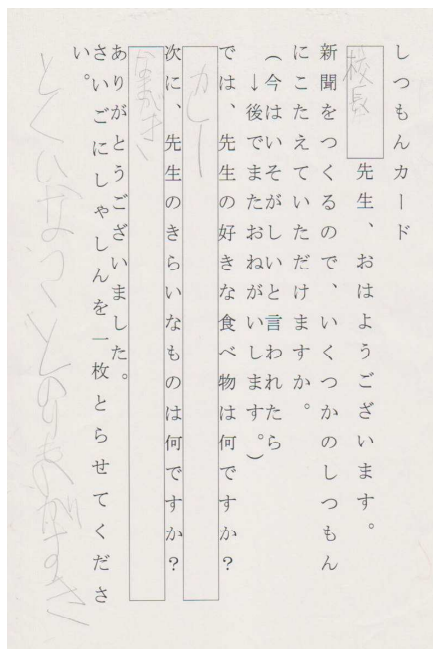 しつもんカード
校長先生、おはようございます。
新聞をつくるので、いくつかのしつもん
にこたえていただけますか。
(今はいそがしいと言われたら
↓後でまたおねがいします。)
では、先生の好きな食べ物は何ですか?
カレー
次に、先生のきらいなものは何ですか?
なまがき
ありがとうございました。
さいごにしゃしんを一枚とらせてくださ
い。